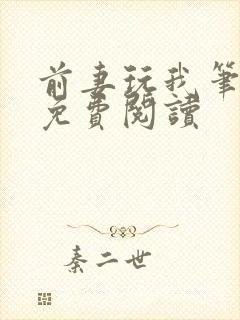 前妻玩我筆
免費閱讀
秦二世